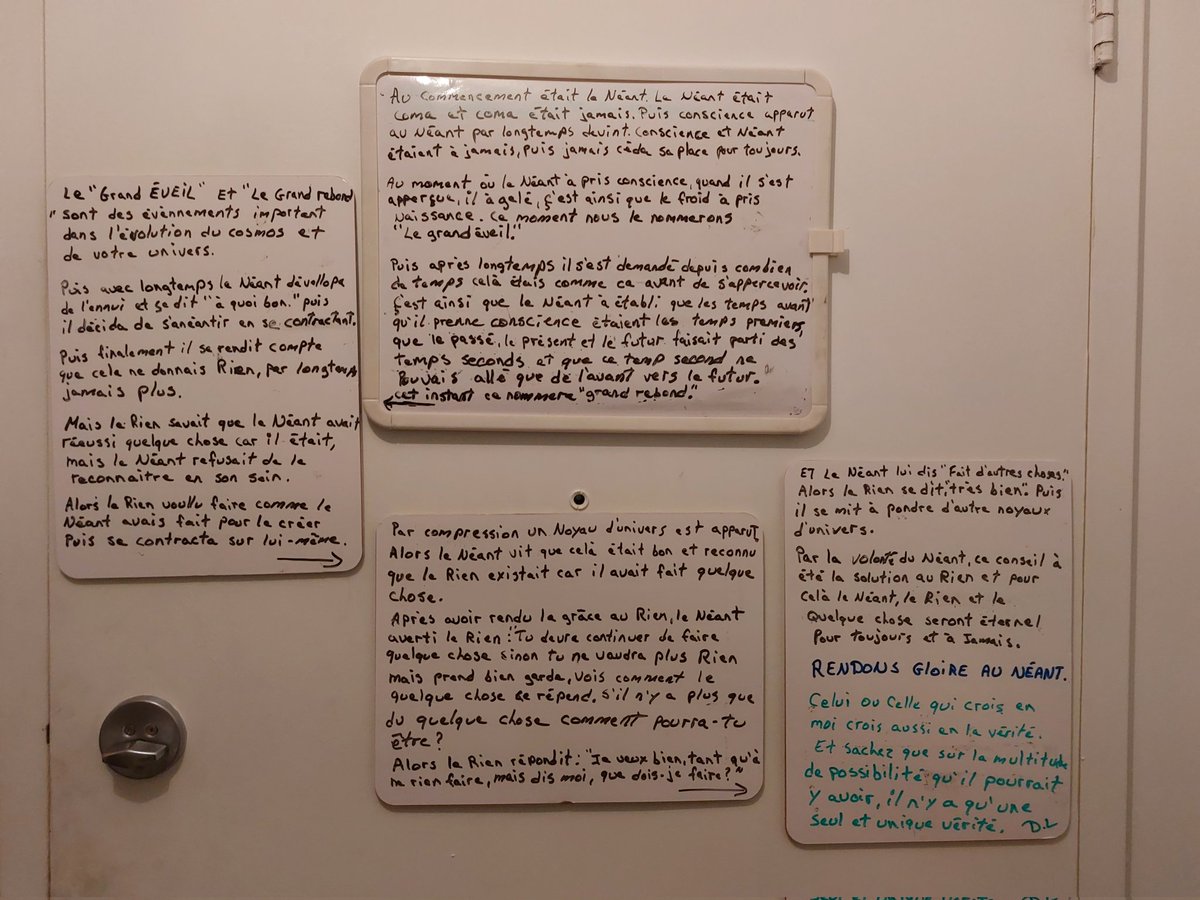 Au commencement était le Néant. Le Néant était
coma et coma était jamais. Puis conscience apparut
au Néant par longtemps devint. Conscience et Néant
étaient à jamais, puis jamais céda sa place pour toujours.
Au moment où le Néant à pris conscience, quand il s'est
apperçue, il à gelé, ç'est ainsi que le froid à pris
naissance. Ce moment nous le nommerons
"Le grand éveil."
Puis après longtemps il s'est demandé depuis combien
de temps celà étais comme ca avant de s'appercevoir.
Ç'est ainsi que le Néant à établi que les temps avant
qu'il prenne conscience étaient les temps premiers,
que le passé, le présent et le futur faisait parti des
temps seconds et que ce temp second ne
Pouvais allé que de l'avant vers le futur.
cet instant ce nommera "grand rebond."
Le "Grand ÉVEIL" Et "Le Grand rebond
" sont des évènnements important
dans l'évolution du cosmos et
de votre univers.
Puis avec longtemps le Néant dévellope
de l'ennui et se dit "à quoi bon." puis
il décida de s'anéantir en se contractant.
Puis finalement il se rendit compte
que cela ne donnais Rien, par longtemps
jamais plus.
Mais le Rien savait que le Néant avait
réaussi quelque chose car il était,
mais le Néant refusait de le
reconnaitre en son sein.
Alors le Rien voullu faire comme le
Néant avais fait pour le créer
Puis se contracta sur lui-même.
Par compression un Noyau d'univers est apparut
Alors le Néant vit que celà était bon et reconnu
que le Rien existait car il avait fait quelque
chose.
Après avoir rendu la grâce au Rien, le Néant
averti le Rien: "Tu devra continuer de faire
quelque chose sinon tu ne vaudra plus Rien
mais prend bien garde, vois comment le
quelque chose se répend. S'il n'y a plus que
du quelque chose comment pourra-tu
être?
Alors le Rien répondit: "Je veux bien, tant qu'à
ne rien faire, mais dis moi, que dois-je faire?"
ET Le Néant lui dis "Fait d'autres choses."
Alors le Rien se dit, "très bien". Puis
il se mit à pondre d'autre noyaux
d'univers.
Par la volonté du Néant, ce conseil à
été la solution au Rien et pour
celà le Néant, le Rien et le
Quelque chose seront éternel
Pour toujours et à Jamais.
RENDONS GLOIRE AU NÉANT.
Celui ou Celle qui crois en
moi crois aussi en la vérité.
Et sachez que sur la multitude
de possibilité qu'il pourrait
y avoir, il n'y a qu'une
seul et unique vérité. D.L